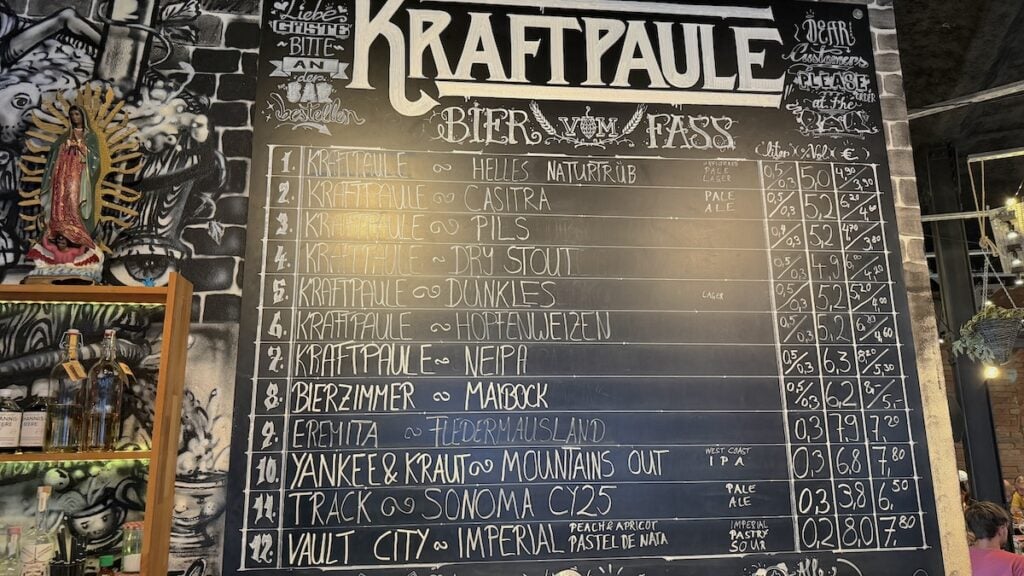 Liebe
GÄSTE
BITTE
AN
der
BAR
bestellen
KRAFTPAULE
DEAR
Customers
PLEASE
ORDER
at the
BIER VOM FASS
Liter % Vol €
1. KRAFTPAULE ~ HELLES NATURTRÜB PALE LAGER 0,5/0,3 5,0 4,90/3,90
2. KRAFTPAULE ~ CASITRA PALE ALE 0,5/0,3 5,2
3. KRAFTPAULE ~ PILS 5,2
4. KRAFTPAULE ~ DRY STOUT 0,5/0,3 4,9
5. KRAFTPAULE ~ DUNKLES LAGER 0,5/0,3 5,2
6. KRAFTPAULE ~ HOPFENWEIZEN 0,5/0,3 5,2
7. KRAFTPAULE ~ NEIPA 0,5/0,3 6,3
8. BIERZIMMER ~ MAIBOCK 0,5/0,3 6,2 8,-/5,-
9. EREMITA ~ FLEDERMAUSLAND 0,3 7,9 7,20
10. YANKEE & KRAUT ~ MOUNTAINS OUT WEST COAST IPA 0,3 6,8 7,80
11. TRACK ~ SONOMA CY25 PALE ALE 0,3 3,8 6,50
12. VAULT CITY ~ IMPERIAL PEACH & APRICOT PASTEL DE NATA IMPERIAL PASTRY SOUR 0,2 8,0 7,80